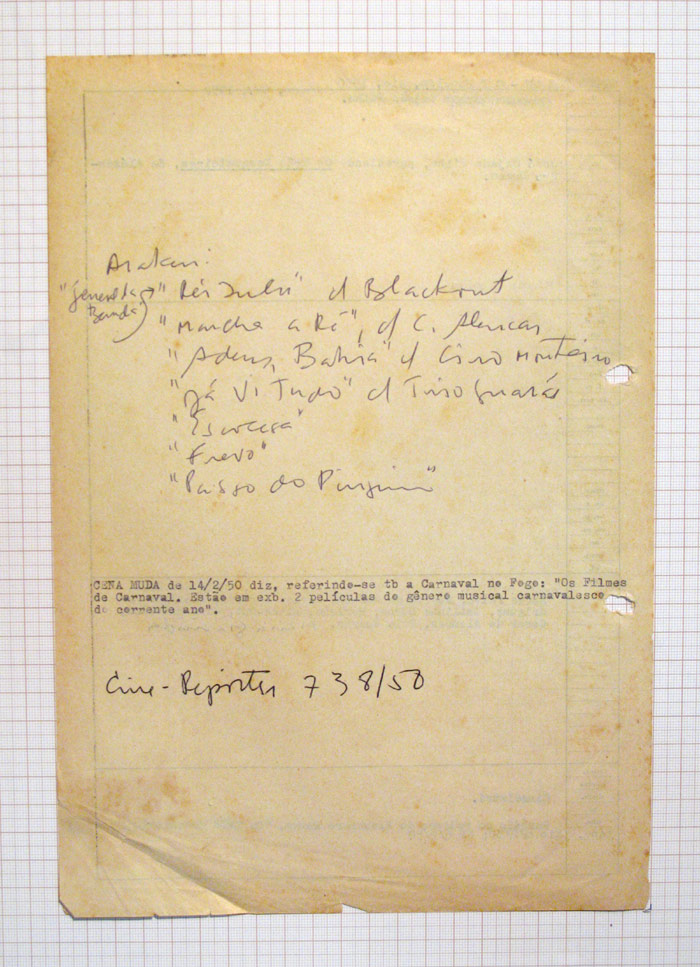 "General da → "
Banda"
" d Blackout
"Marcha a Ré", d C. Alencar
"Adeus, Bahia" d Ciro Monteiro
"Já Vi Tudo" d
"Escocesa"
"Frevo"
"Passo do Pinguim"
CENA MUDA de 14/2/50 diz, referindo-se tb a Carnaval no Fogo: "Os Filmes
de Carnaval. Estão em exb. 2 películas do gênero musical carnavalesco
do corrente ano".
Cine-Reporter 738/50